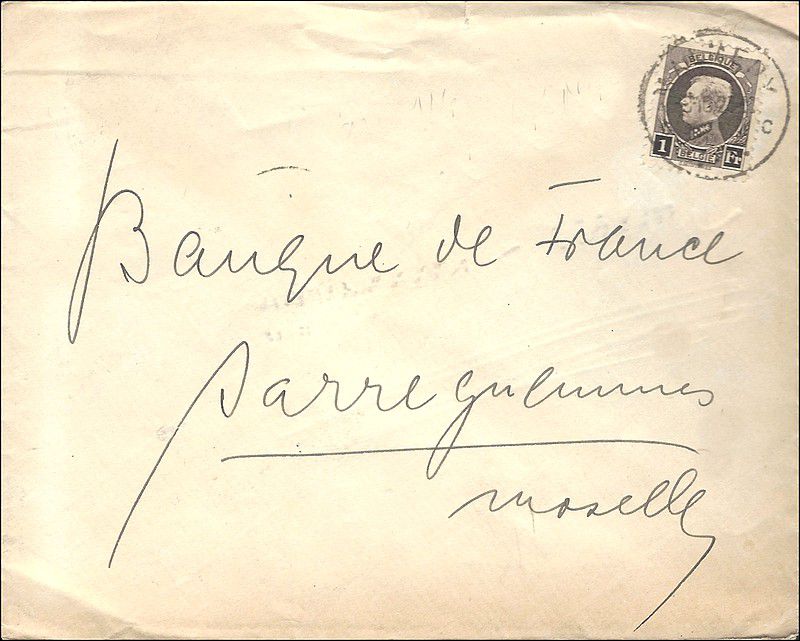 BELGIQUE
1 Fr
BELGIË
Banque de France
Sarreguemines
Moselle